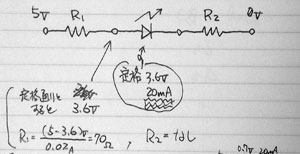 5V R₁ R₂ 0V
定格 3.6V
20mA
定格通りと
すると 3.6V
R₁ = (5-3.6)V / 0.02A = 70Ω , R₂ = なし
0.7V 20mA